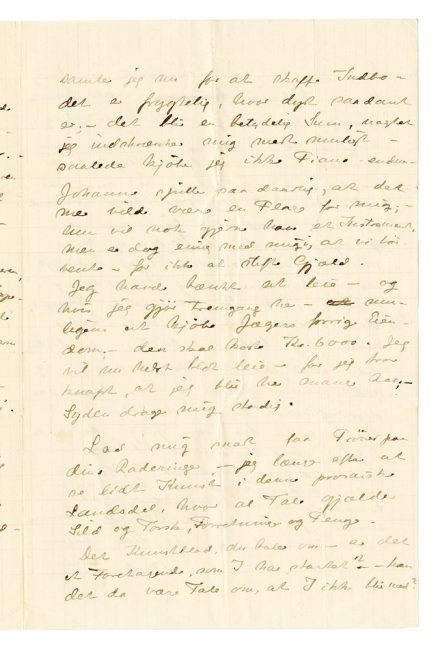 jeg nu for at skaffe Indbo –
det er frygtelig, hvor dyrt saadant
er, – det bli en betydelig Sum, uagtet
jeg indskrænker mig mest muligt –
saaledes kjøber jeg ikke Piano endnu –
Johanne spille saa daarlig, at det
vilde være en Plage for mig, –
hun vil nok gjerne have et Instrument,
men er dog enig med mig i, at vi bør
vente – for ikke at stifte Gjæld.
Jeg havde tænkt at leie – og
hvis jeg gjør Fremgang he –
ligens at kjøbe Jægers forrige Eien-
dom, – den skal koste Kr. 6000. Jeg
vil nu helst blot leie – for jeg tror
knapt, at jeg bli he mange Aar, –
Syden drage mig stadig.
Lad mig snart faa Prøver paa
dine Raderinge – jeg længe efte at
se lidt Kunst i denne prosaiske
Landsdel, hvor al Tale gjælder
Sild og Torsk, Forretninge og Penge.
Det Kunstblad, du tale om – er det
et Foretagende, som I ha startet? – kan
det da være Tale om, at I ikke bli med?